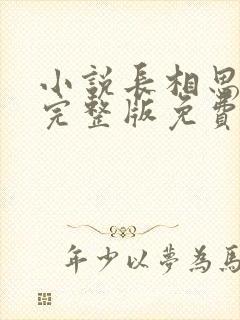 小說長相思
完整版免費
年少以夢為馬